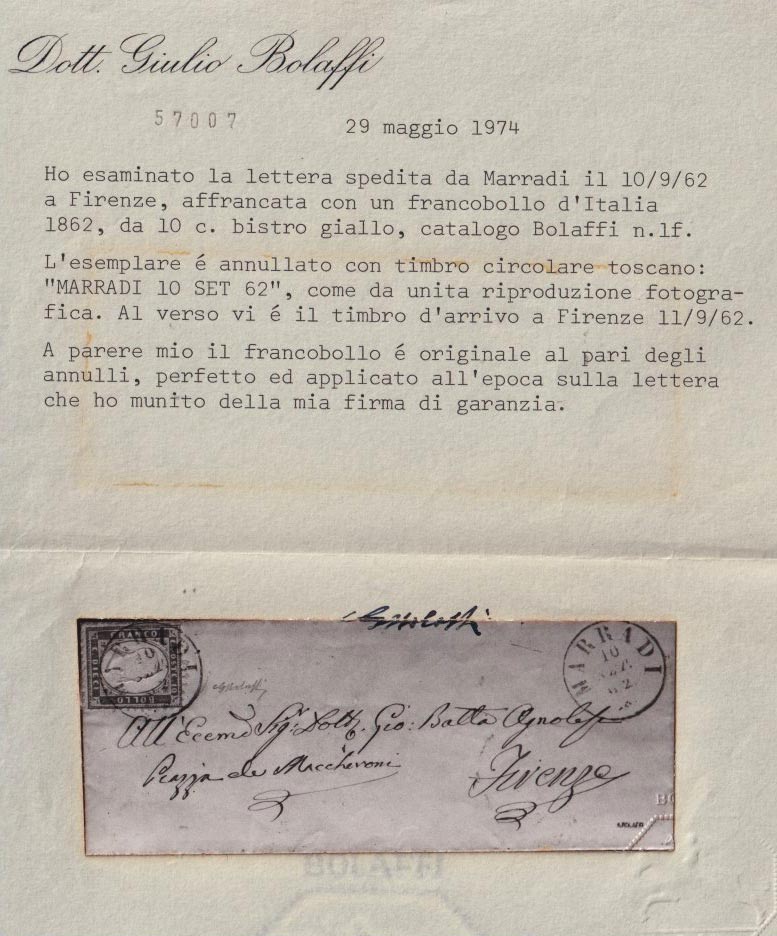 Dott. Giulio Bolaffi
57007
29 maggio 1974
Ho esaminato la lettera spedita da Marradi il 10/9/62
a Firenze, affrancata con un francobollo d'Italia
1862, da 10 c. bistro giallo, catalogo Bolaffi n.1f.
L'esemplare é annullato con timbro circolare toscano:
"MARRADI 10 SET 62", come da unita riproduzione fotogra-
fica. Al verso vi é il timbro d'arrivo a Firenze 11/9/62.
A parere mio il francobollo é originale al pari degli
annulli, perfetto ed applicato all'epoca sulla lettera
che ho munito della mia firma di garanzia.
GBolaffi
FRANCO
BOLLO
MARRADI
10
62
All'Eccmo Sigr Dott. Gio: Batta Agnolesi
Piazza de Maccheroni
Firenze
BOLAFFI